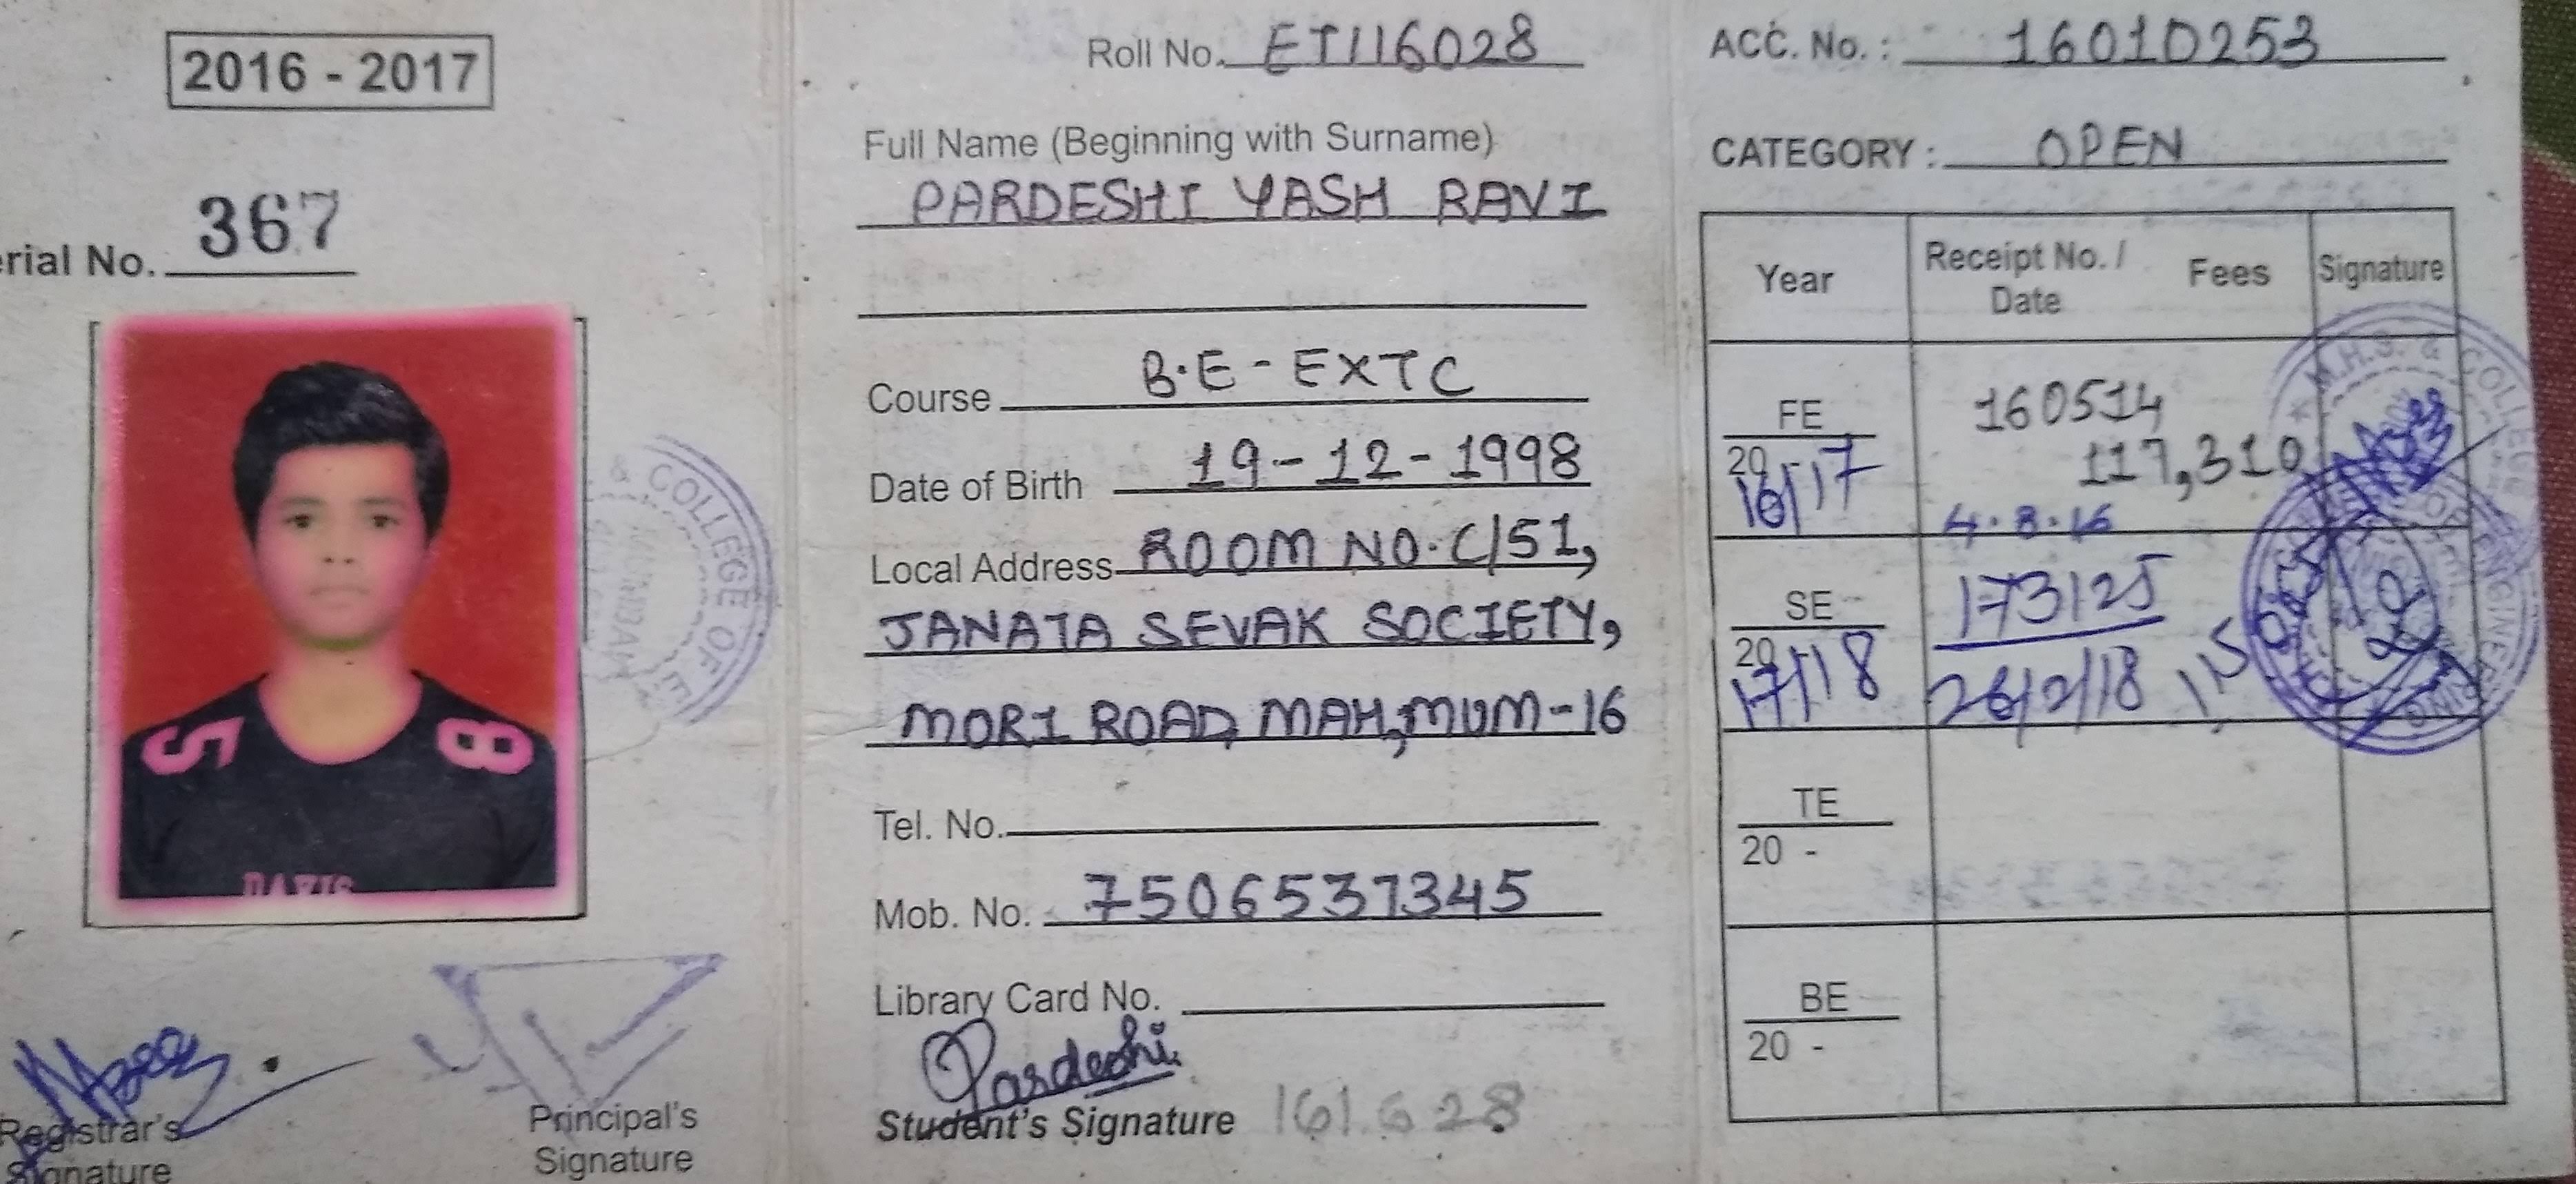 2016 - 2017
erial No. 367
COLLEGE OF E
Registrar's
Signature
Principal's
Signature
Roll No. ET116028
Full Name (Beginning with Surname)
PARDESHI YASH RAVI
Course B.E - EXTC
Date of Birth 19-12-1998
Local Address ROOM NO. C/51,
JANATA SEVAK SOCIETY,
MORI ROAD, MAH, MUM-16
Tel. No.
Mob. No. 7506537345
Library Card No.
Pardeshi
Student's Signature 161628
ACC. No. : 16010253
CATEGORY : OPEN
Year Receipt No. / Date Fees Signature
FE 20 16/17 160514 117,310
4.8.16
SE 20 17/18 173125
26/2/18
TE
20 -
BE
20 -
M.H.S. & COLLEGE
OF ENGINEERING